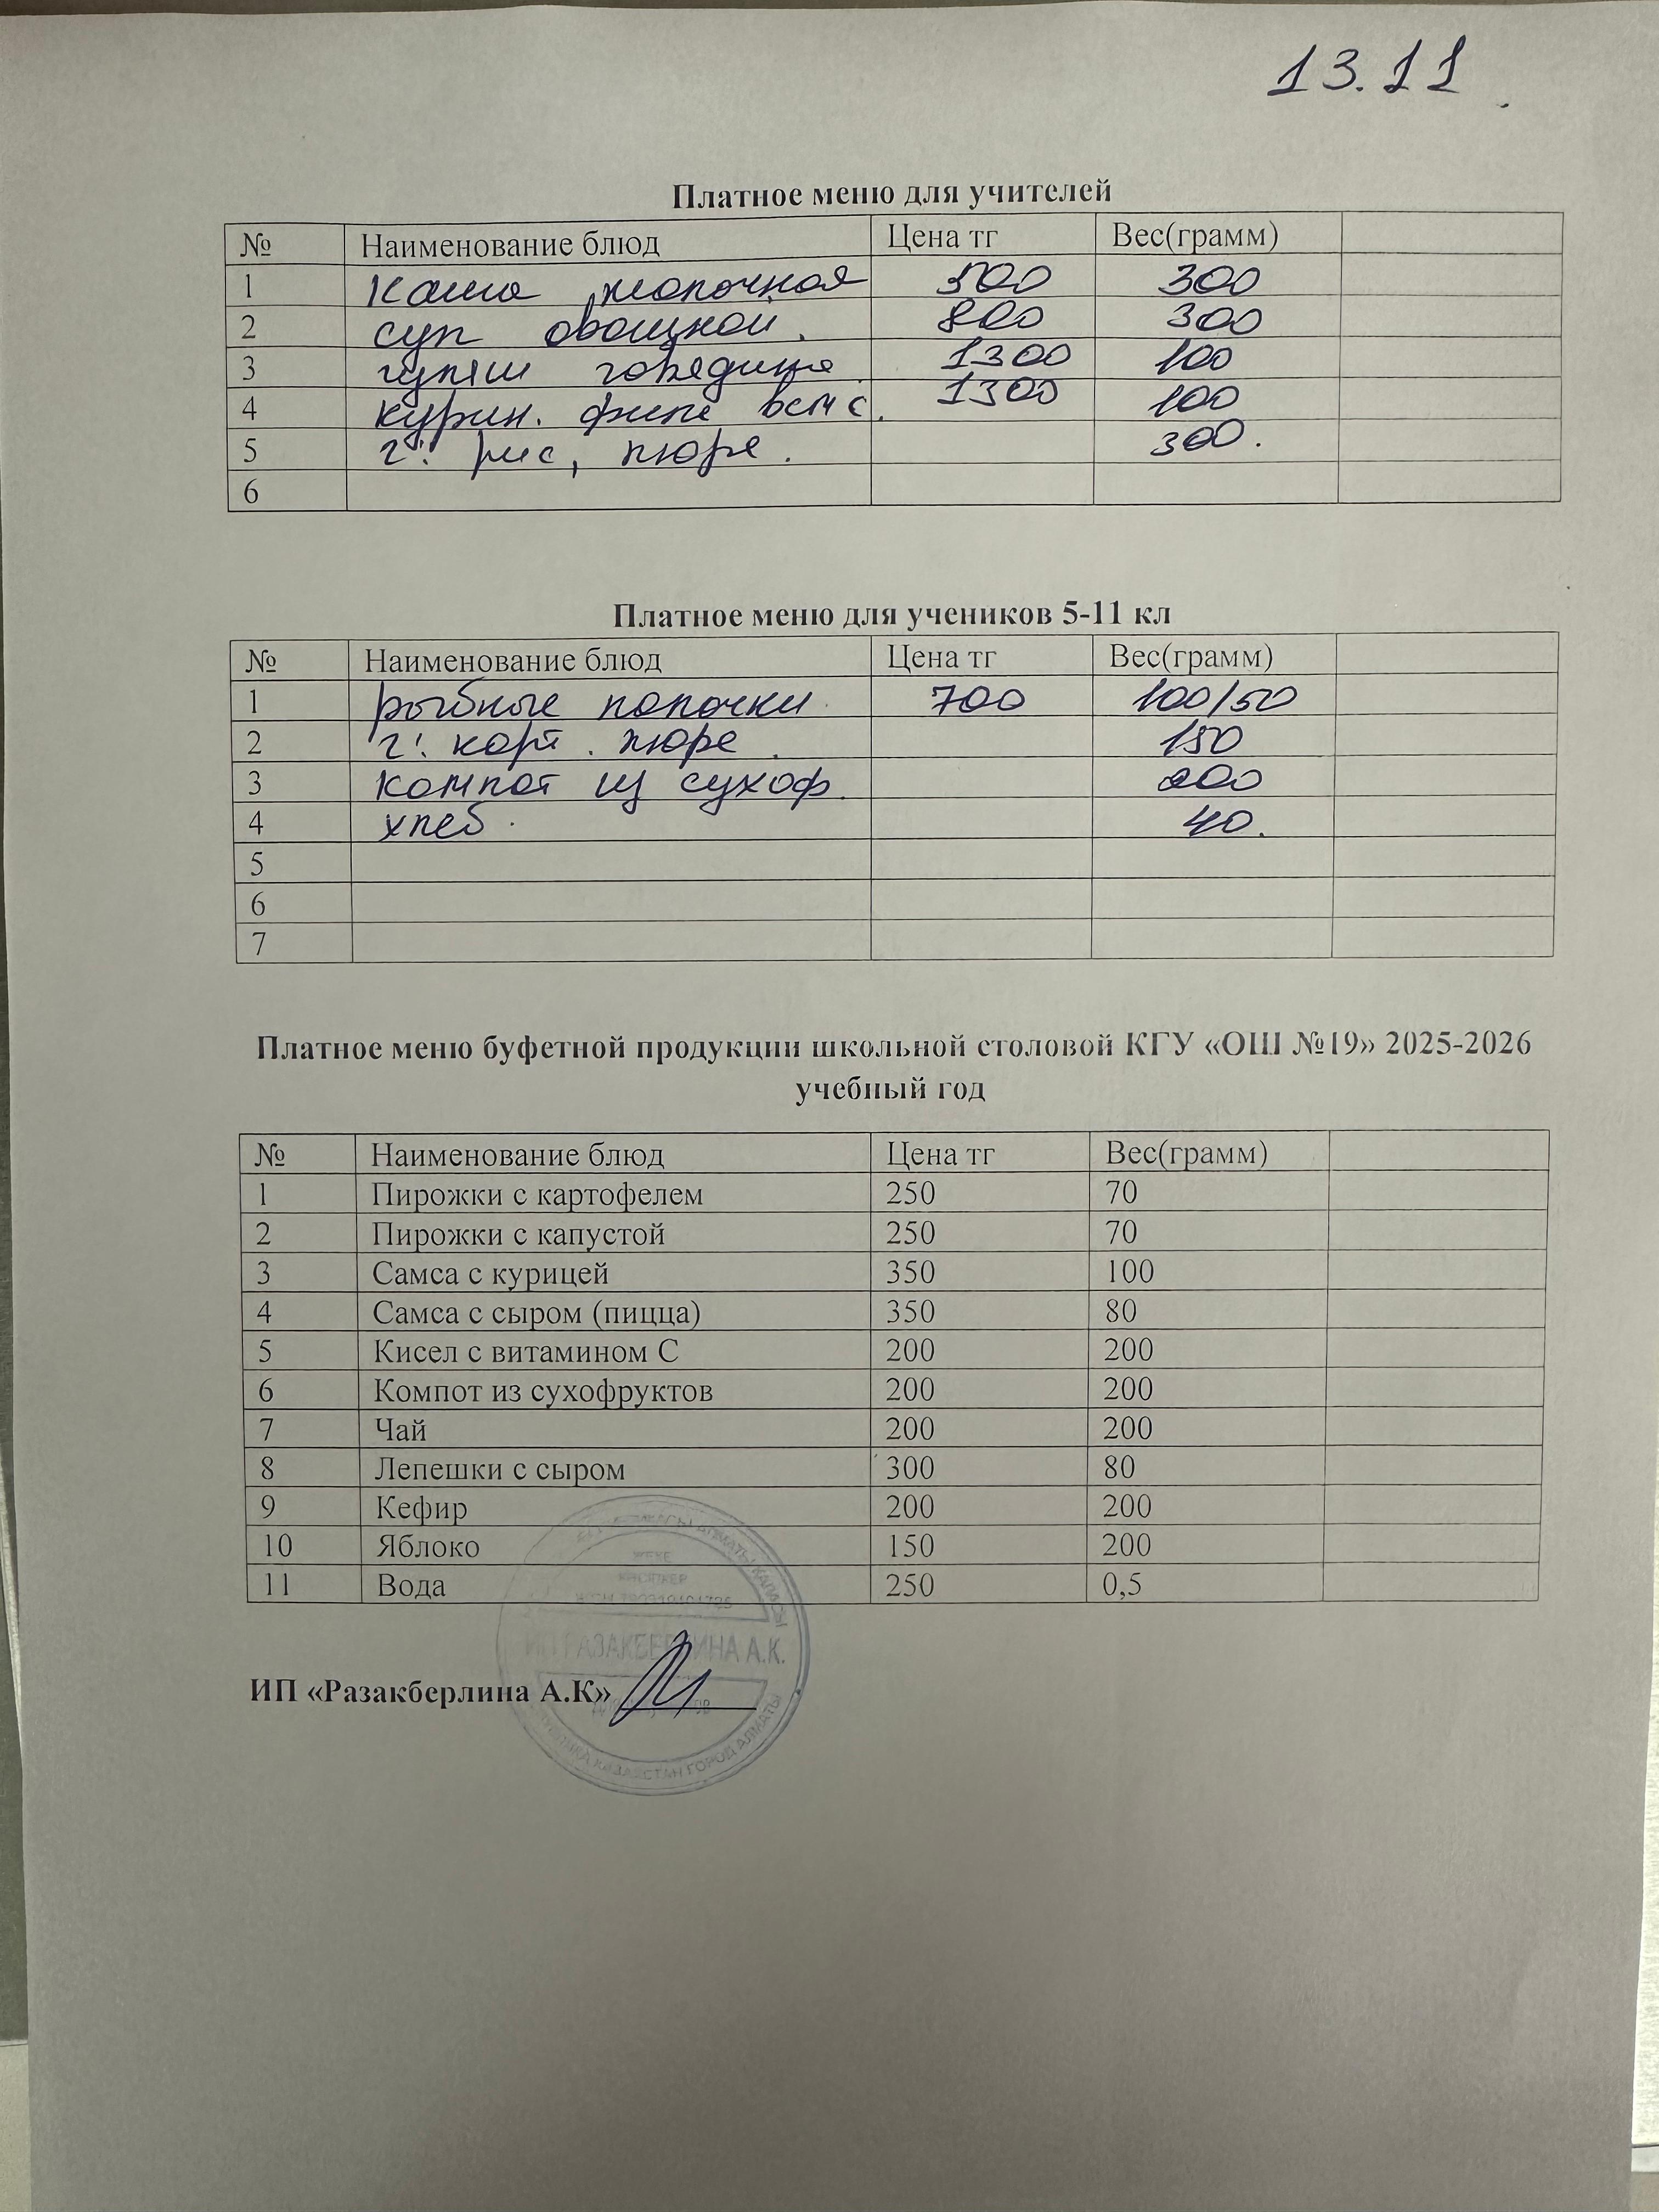 13.11
Платное меню для учителей
№ Наименование блюд Цена тг Вес(грамм)
1 Каша молочная 500 300
2 суп овощной. 800 300
3 гуляш говядина 1300 100
4 курин. филе 1300 100
5 г: рис, пюре. 300.
6
Платное меню для учеников 5-11 кл
№ Наименование блюд Цена тг Вес(грамм)
1 рыбные палочки 700 100/50
2 г: карт. пюре. 150
3 компот из сухоф. 200
4 хлеб. 40.
5
6
7
Платное меню буфетной продукции школьной столовой КГУ «ОШ №19» 2025-2026
учебный год
№ Наименование блюд Цена тг Вес(грамм)
1 Пирожки с картофелем 250 70
2 Пирожки с капустой 250 70
3 Самса с курицей 350 100
4 Самса с сыром (пицца) 350 80
5 Кисел с витамином С 200 200
6 Компот из сухофруктов 200 200
7 Чай 200 200
8 Лепешки с сыром 300 80
9 Кефир 200 200
10 Яблоко 150 200
11 Вода 250 0,5
ИП «Разакберлина А.К»
ИП РАЗАКБЕРЛИНА А.К.
КАЗАХСТАН ГОРОД АЛМАТЫ